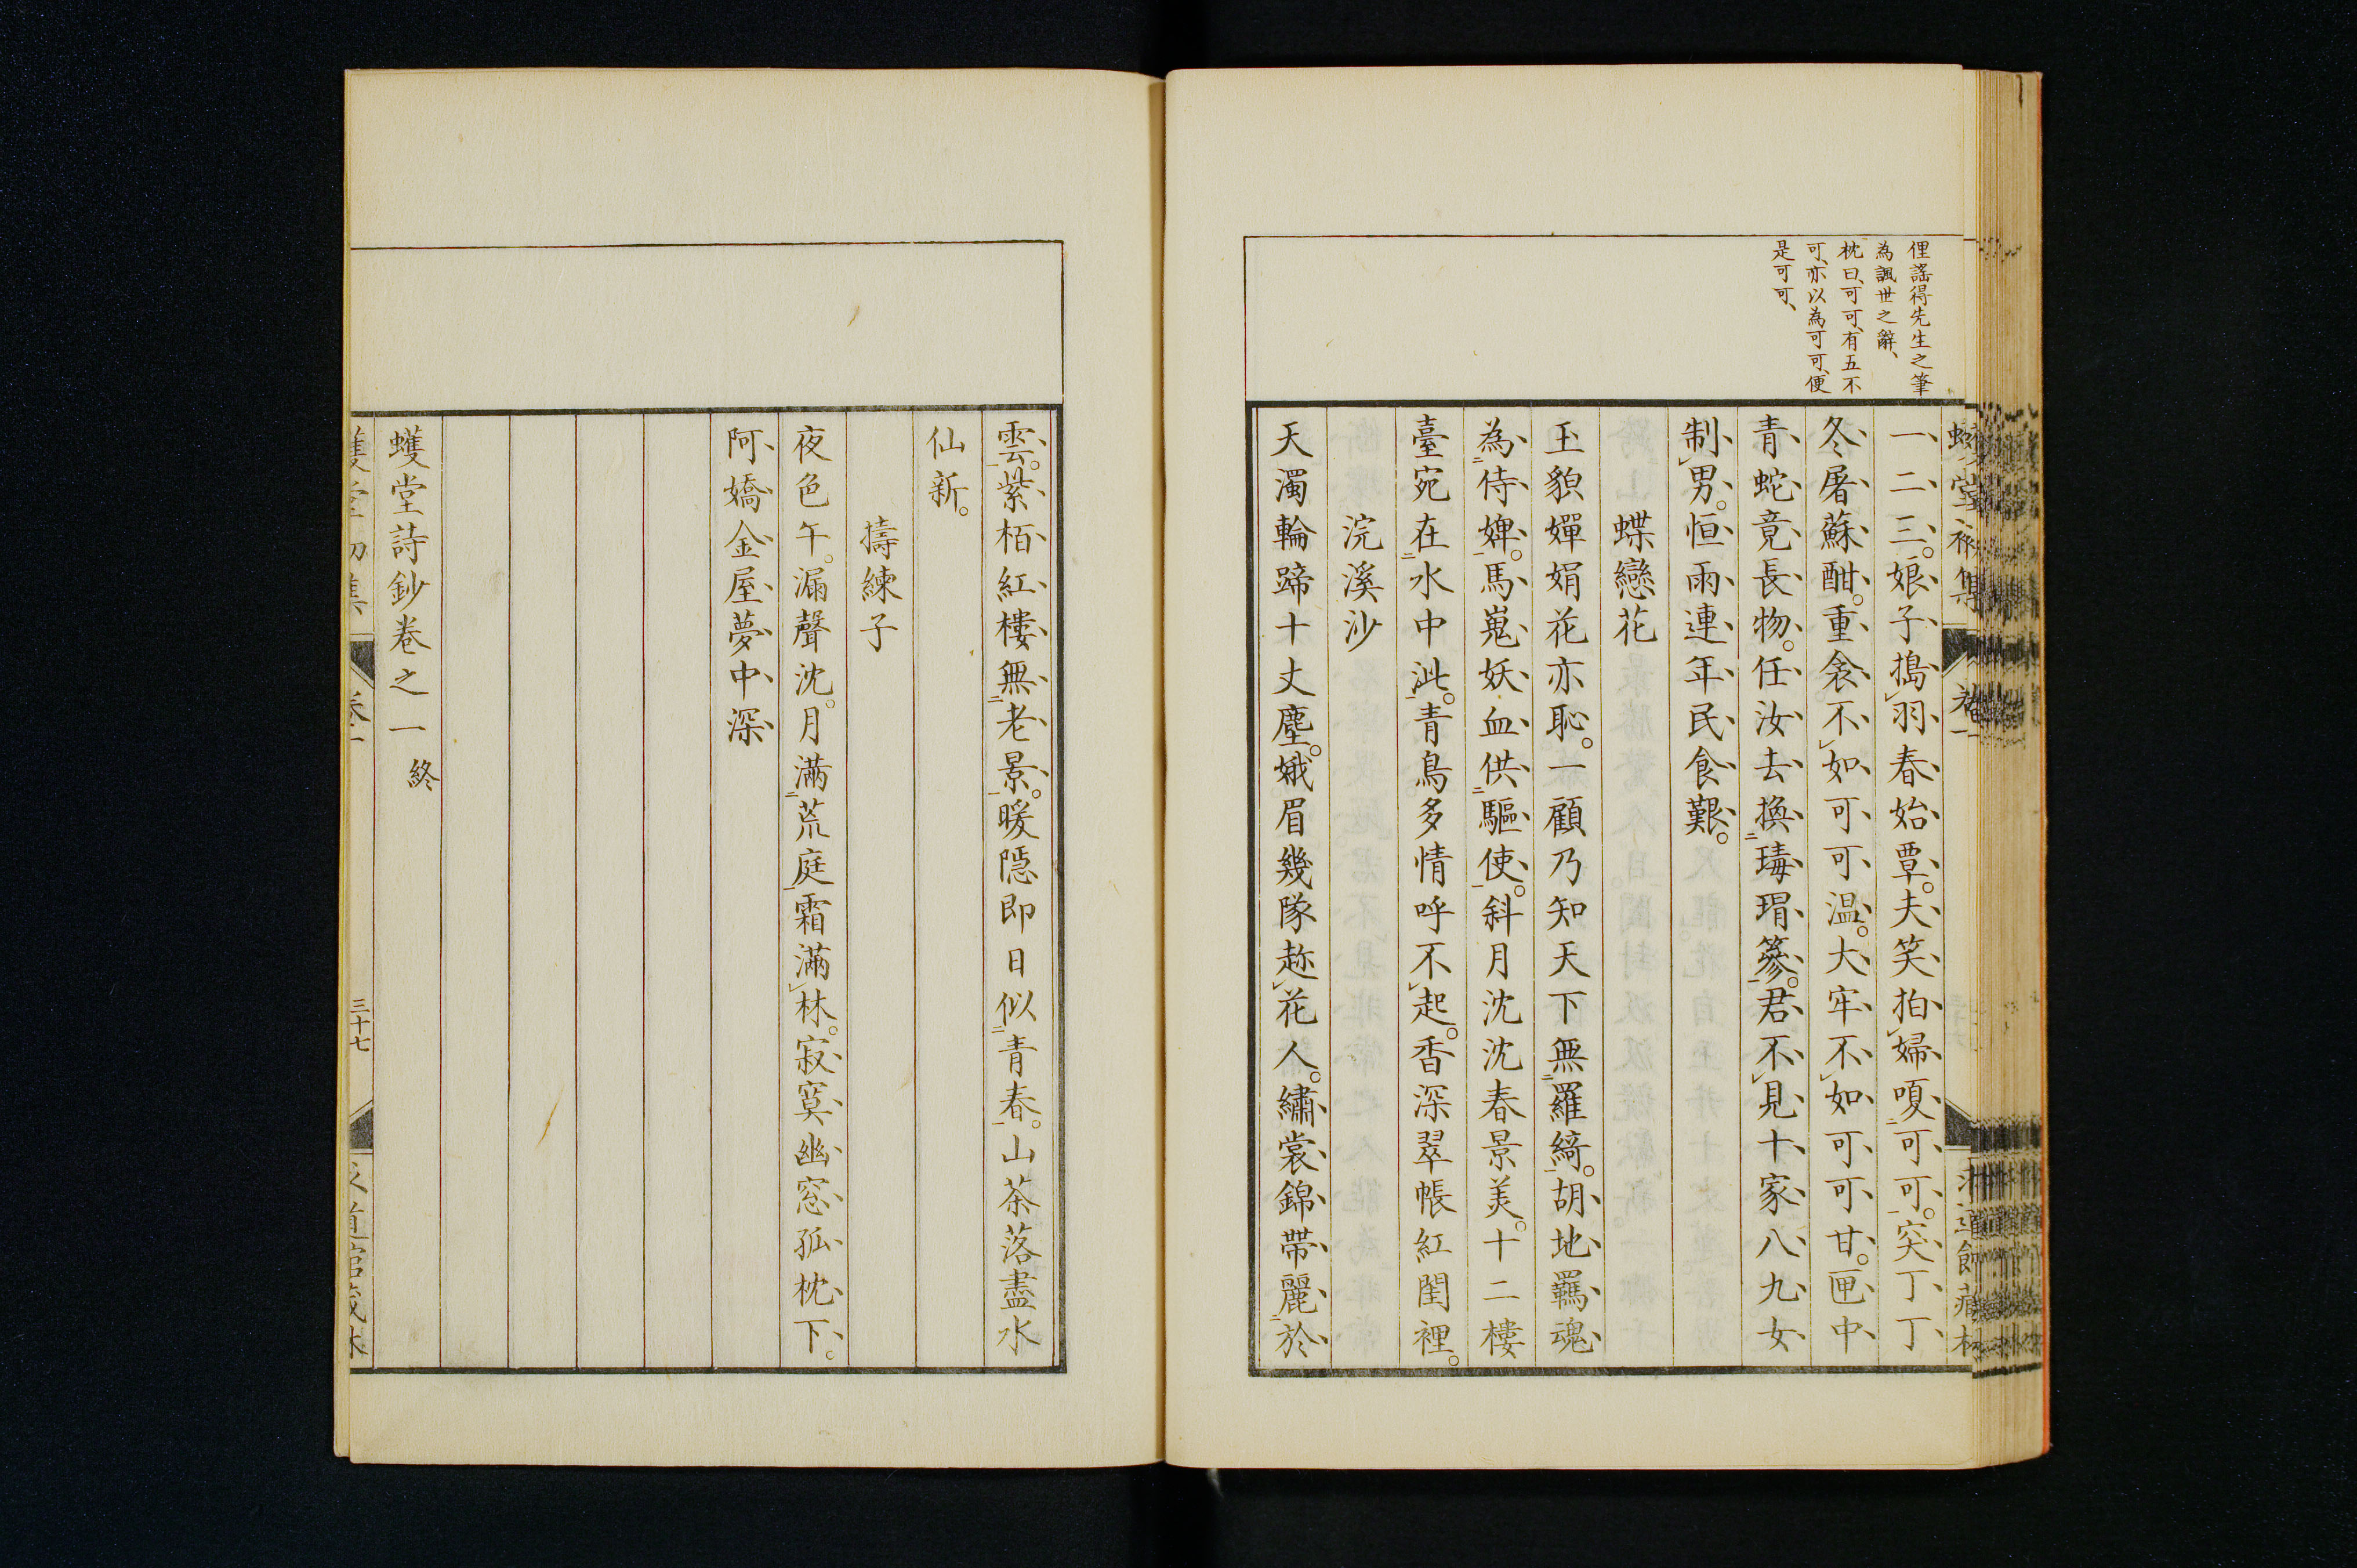 俚謡得先生之筆
為諷世之辭、
枕曰、可可、有五不
可、亦以為可可、便
是可可、
一二三。娘子搗羽春始覃。夫笑拍婦嗄可可。突丁丁
冬屠蘇酣。重衾不如可可温。大牢不如可可甘。匣中
青蛇竟長物。任汝去換瑇瑁篸。君不見十家八九女
制男。恒雨連年民食艱。
蝶戀花
玉貌嬋娟花亦恥。一顧乃知天下無羅綺。胡地羈魂
為侍婢。馬嵬妖血供驅使。斜月沈沈春景美。十二樓
臺宛在水中沚。青鳥多情呼不起。香深翠帳紅閨裡。
浣溪沙
天濁輪蹄十丈塵。娥眉幾隊趂花人。繡裳錦帶麗於
雲。紫栢紅樓無老景。暖隠即日似青春。山茶落盡水
仙新。
擣練子
夜色午。漏聲沈。月滿荒庭霜滿林。寂寞幽窓孤枕下。
阿嬌金屋夢中深
蠖堂詩鈔卷之一 終
三十七